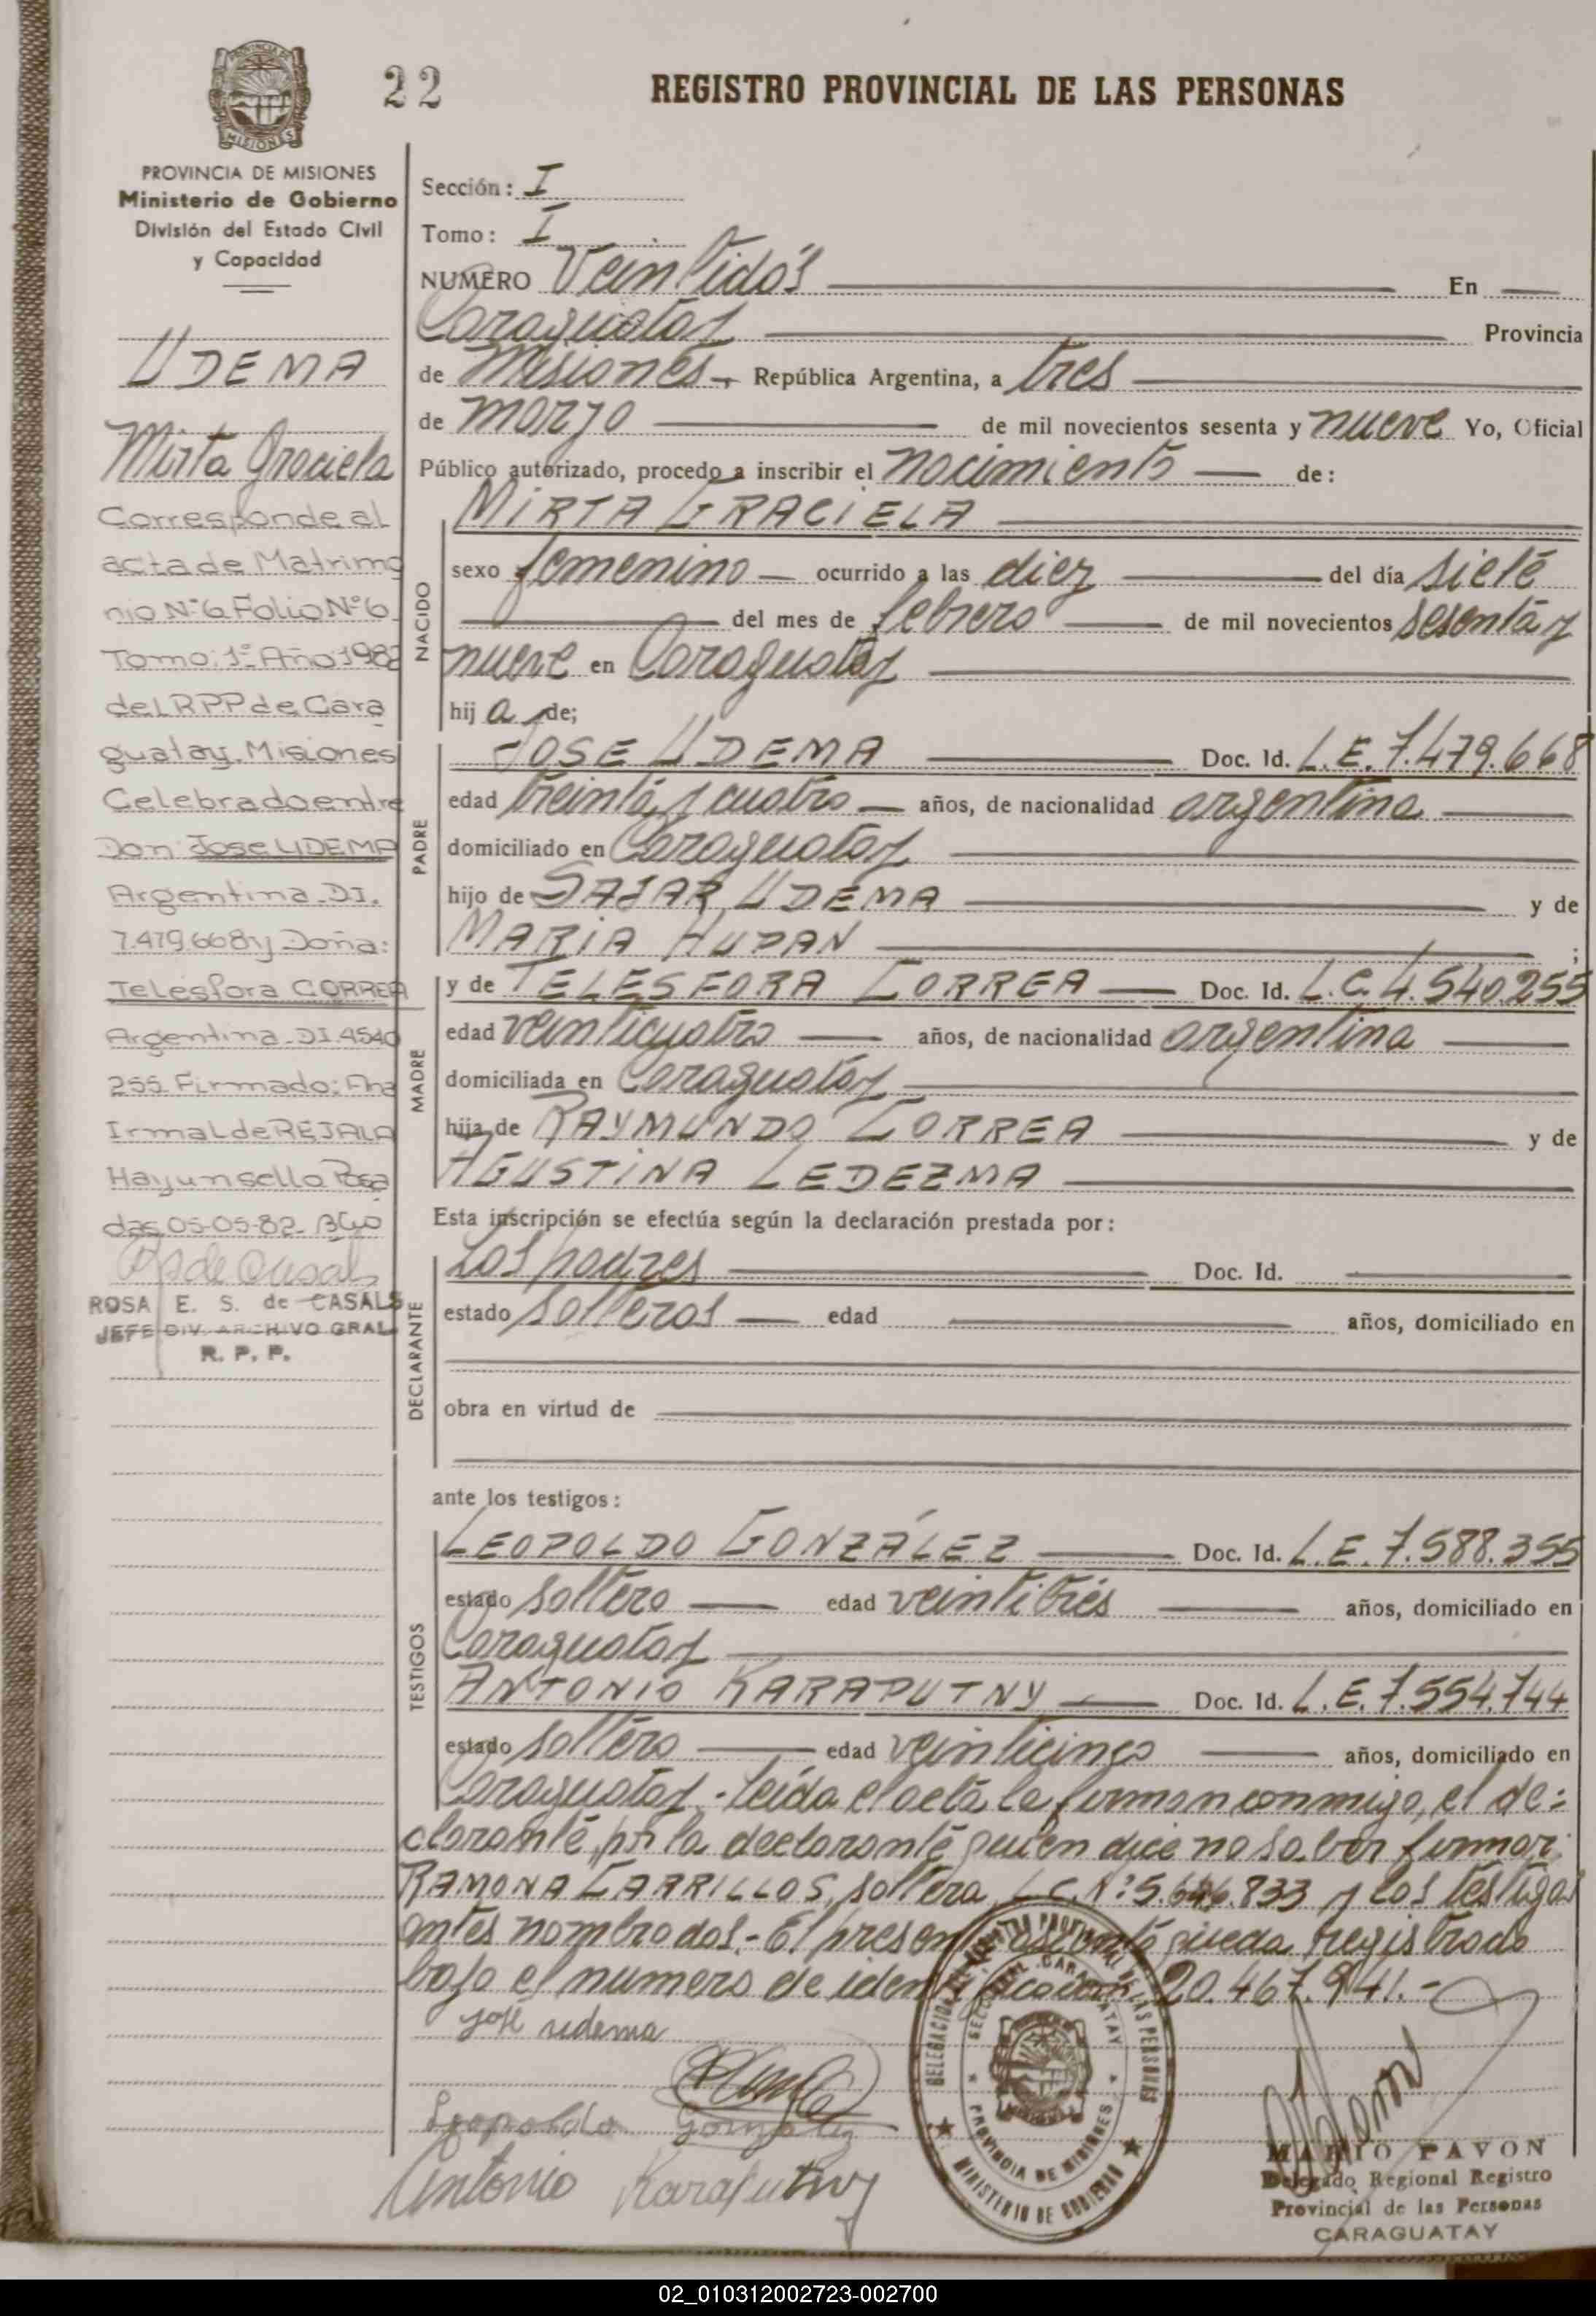 22
REGISTRO PROVINCIAL DE LAS PERSONAS
PROVINCIA DE MISIONES
Ministerio de Gobierno
División del Estado Civil
y Capacidad
UDEMA
Mirta Graciela
Corresponde al
acta de Matrimo
nio Nº6 Folio Nº6
Tomo: 1º Año 1982
del RPP de Cara
guatay. Misiones
Celebrado entre
Don: Jose UDEMA
Argentina. DI.
7.479.668 y Doña:
Telesfora CORREA
Argentina. DI. 4540
255. Firmado: Ana
Irma L de REJALA
Hay un sello Posa
das 05-05-82.
ROSA E. S. de CASALS
JEFE DIV. ARCHIVO GRAL
R. P. P.
Sección: I
Tomo: I
NUMERO Veintidós En
Caraguatay Provincia
de Misiones República Argentina, a tres
de marzo de mil novecientos sesenta y nueve Yo, Oficial
Público autorizado, procedo a inscribir el nacimiento de:
NACIDO
MIRTA GRACIELA
sexo femenino ocurrido a las diez del día siete
del mes de febrero de mil novecientos sesenta y
nueve en Caraguatay
hija de;
PADRE
JOSE UDEMA Doc. Id. L.E. 7.479.668
edad treinta y cuatro años, de nacionalidad argentina
domiciliado en Caraguatay
hijo de SAJAR UDEMA y de
MARIA HUPAN ;
MADRE
y de TELESFORA CORREA Doc. Id. L.C. 4.540.255
edad veinticuatro años, de nacionalidad argentina
domiciliada en Caraguatay
hija de RAYMUNDO CORREA y de
AGUSTINA LEDEZMA
Esta inscripción se efectúa según la declaración prestada por:
DECLARANTE
Los padres Doc. Id.
estado solteros edad años, domiciliado en
obra en virtud de
ante los testigos:
TESTIGOS
LEOPOLDO GONZÁLEZ Doc. Id. L.E. 7.588.355
estado soltero edad veintitrés años, domiciliado en
Caraguatay
ANTONIO KARAPUTNY Doc. Id. L.E. 7.554.744
estado soltero edad veinticinco años, domiciliado en
Caraguatay.- Leída el acta la firman conmigo, el de=
clarante, pr la declarante quien dice no saber firmar:
RAMONA CARRILLOS, soltera, L.C. Nº: 5.646.833 y los testigos
antes nombrados.- El presente asiento queda registrado
bajo el numero de identificación 20.467.941.-
José udema
Leopoldo González
Antonio Karaputny
DELEGACION DEL REGISTRO PROVINCIAL DE LAS PERSONAS
SECCIONAL CARAGUATAY
PROVINCIA DE MISIONES
MINISTERIO DE GOBIERNO
MARIO PAVON
Delegado Regional Registro
Provincial de las Personas
CARAGUATAY
02_010312002723-002700